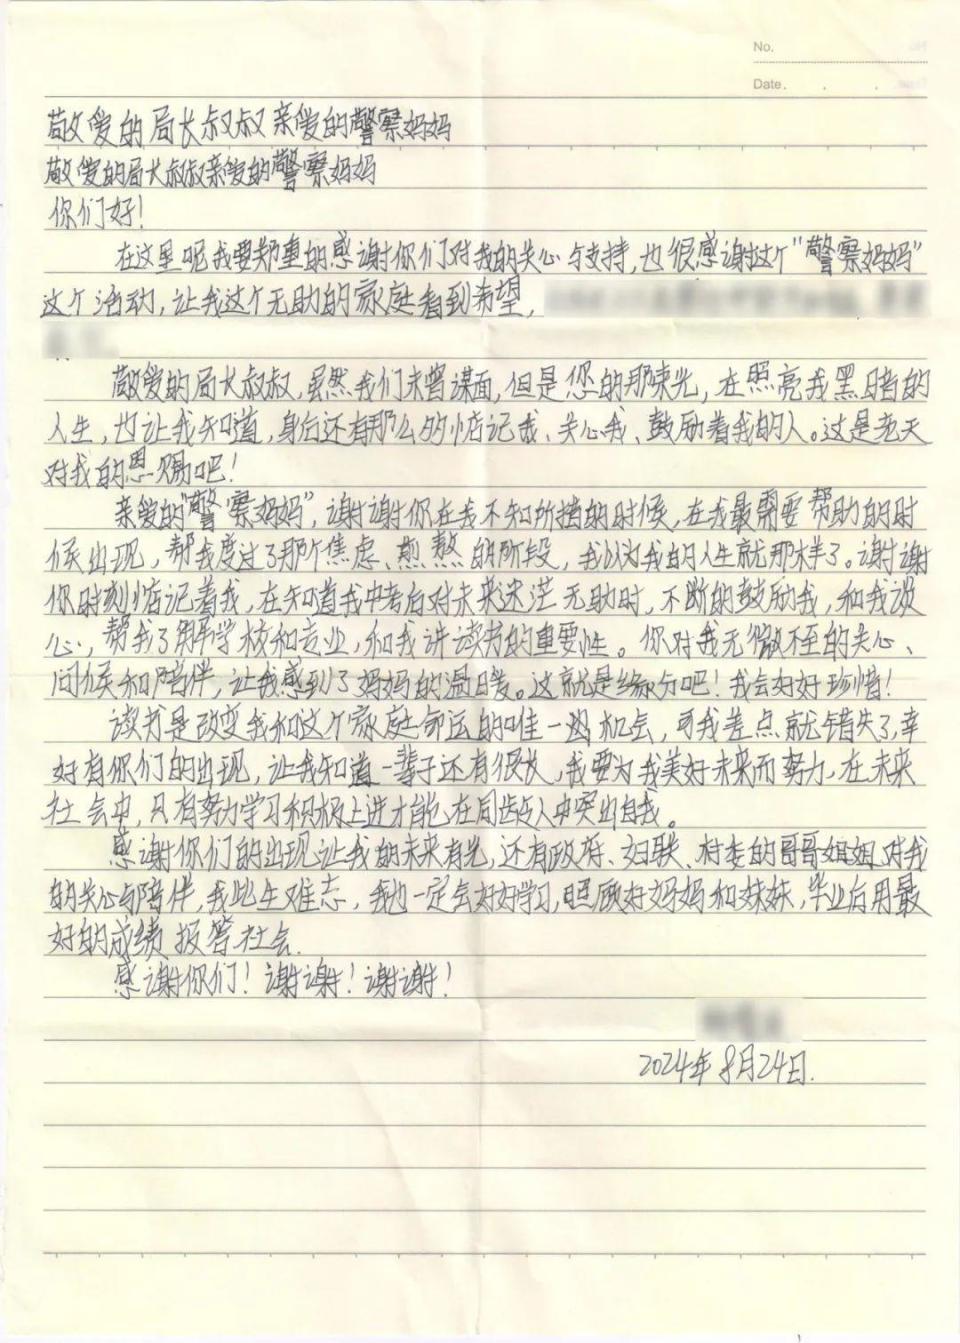 No.
Date.
敬爱的局长叔叔亲爱的警察妈妈
敬爱的局长叔叔亲爱的警察妈妈
你们好!
在这里呢我要郑重的感谢你们对我的关心与支持,也很感谢这个"警察妈妈"
这个活动,让我这个无助的家庭看到希望,
敬爱的局长叔叔,虽然我们未曾谋面,但是您的那束光,在照亮我黑暗的
人生,也让我知道,身后还有那么多惦记我、关心我、鼓励着我的人。这是老天
对我的恩赐吧!
亲爱的"警察妈妈",谢谢你在我不知所措的时候,在我最需要帮助的时
候出现,帮我度过了那所焦虑、煎熬的阶段,我以为我的人生就那样了。谢谢
你时刻惦记着我,在知道我中考后对未来迷茫无助时,不断的鼓励我,和我谈
心,帮我了解学校和专业,和我讲读书的重要性。你对我无微不至的关心、
问候和陪伴,让我感到了妈妈的温暖。这就是缘分吧!我会好好珍惜!
读书是改变我和这个家庭命运的唯一机会,可我差点就错失了,幸
好有你们的出现,让我知道一辈子还有很长,我要为我美好未来而努力,在未来
社会中,只有努力学习积极上进才能在同龄人中突出自我。
感谢你们的出现让我的未来有光,还有政府、妇联、村委的哥哥姐姐对我
的关心与陪伴,我此生难忘,我也一定会好好学习,照顾好妈妈和妹妹,毕业后用最
好的成绩报答社会.
感谢你们!谢谢!谢谢!
2024年8月24日.